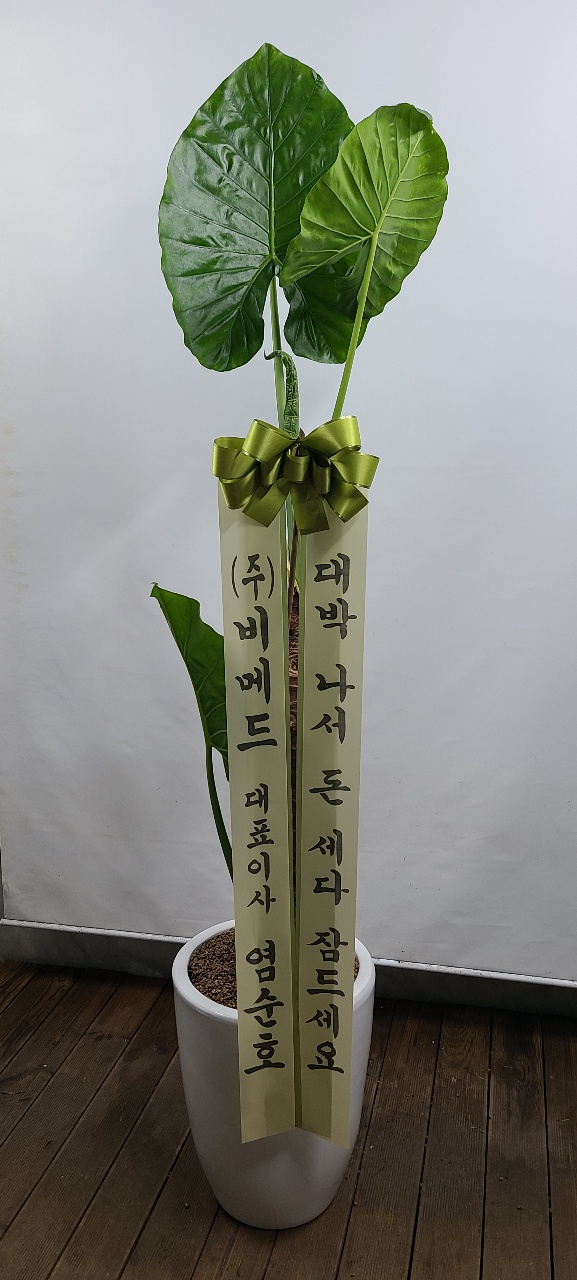 대박 나서 돈 세다 잠드세요
(주)비메드 대표이사 염순호